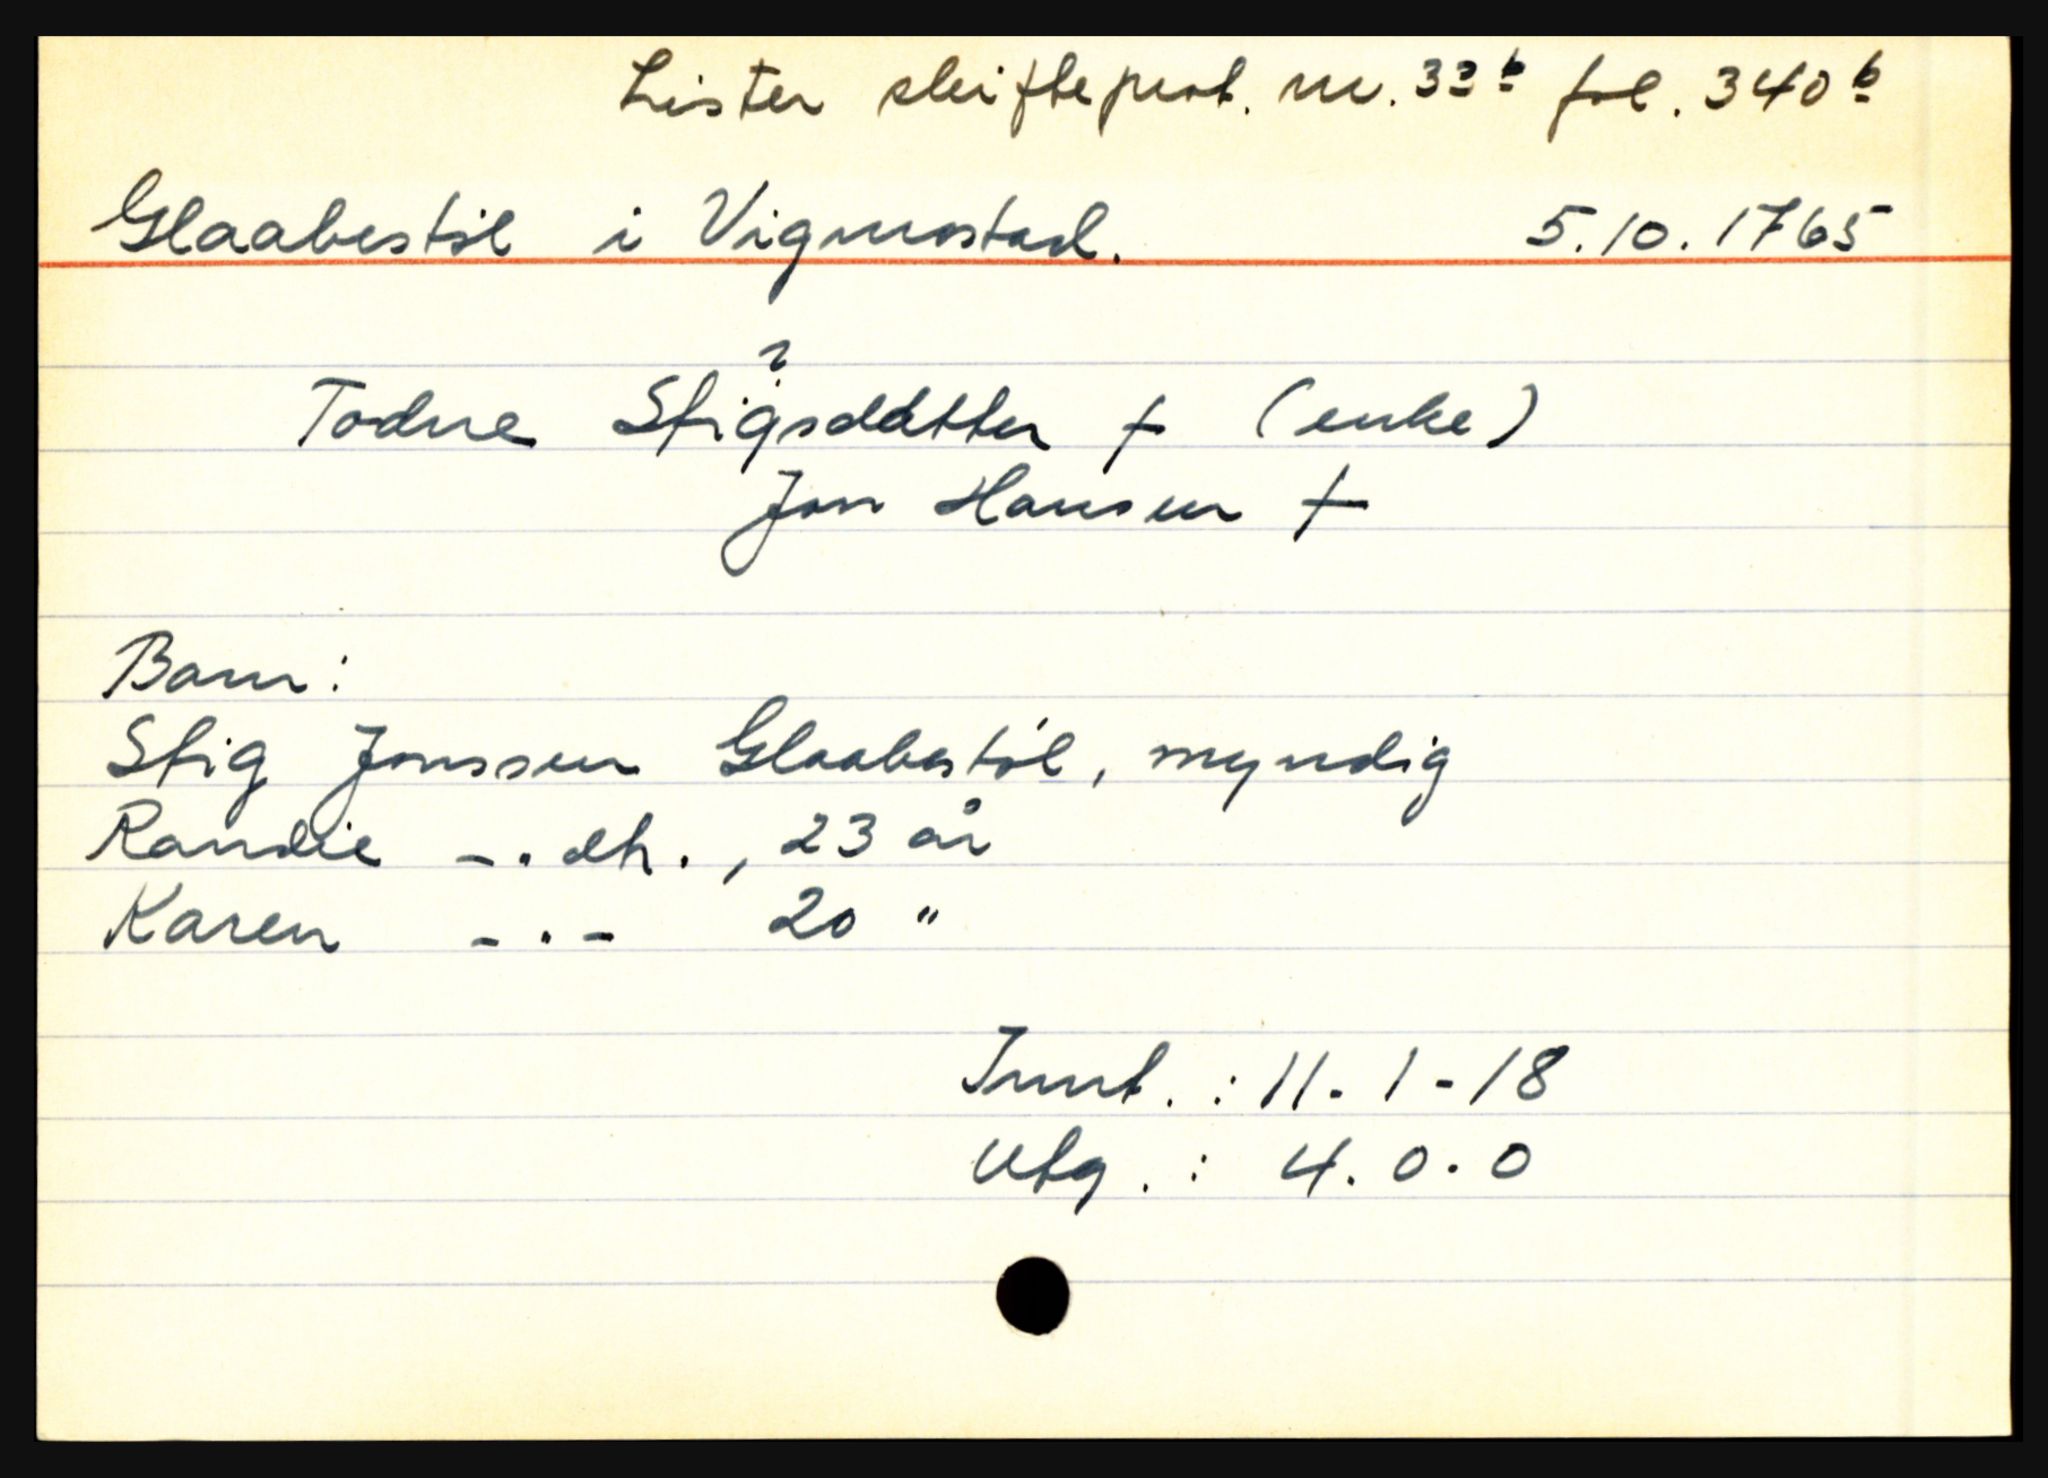 Lister skifteprot. nr. 33b fol. 340b
Glaabestøl i Vigmostad. 5.10.1765
?
Todne Stigsdatter † (enke)
Jon Hansen †
Barn:
Stig Jonssen Glaabestøl, myndig
Randie -.- dt., 23 år
Karen -.- 20 "
Innt. : 11-1-18
Utg. : 4.0.0